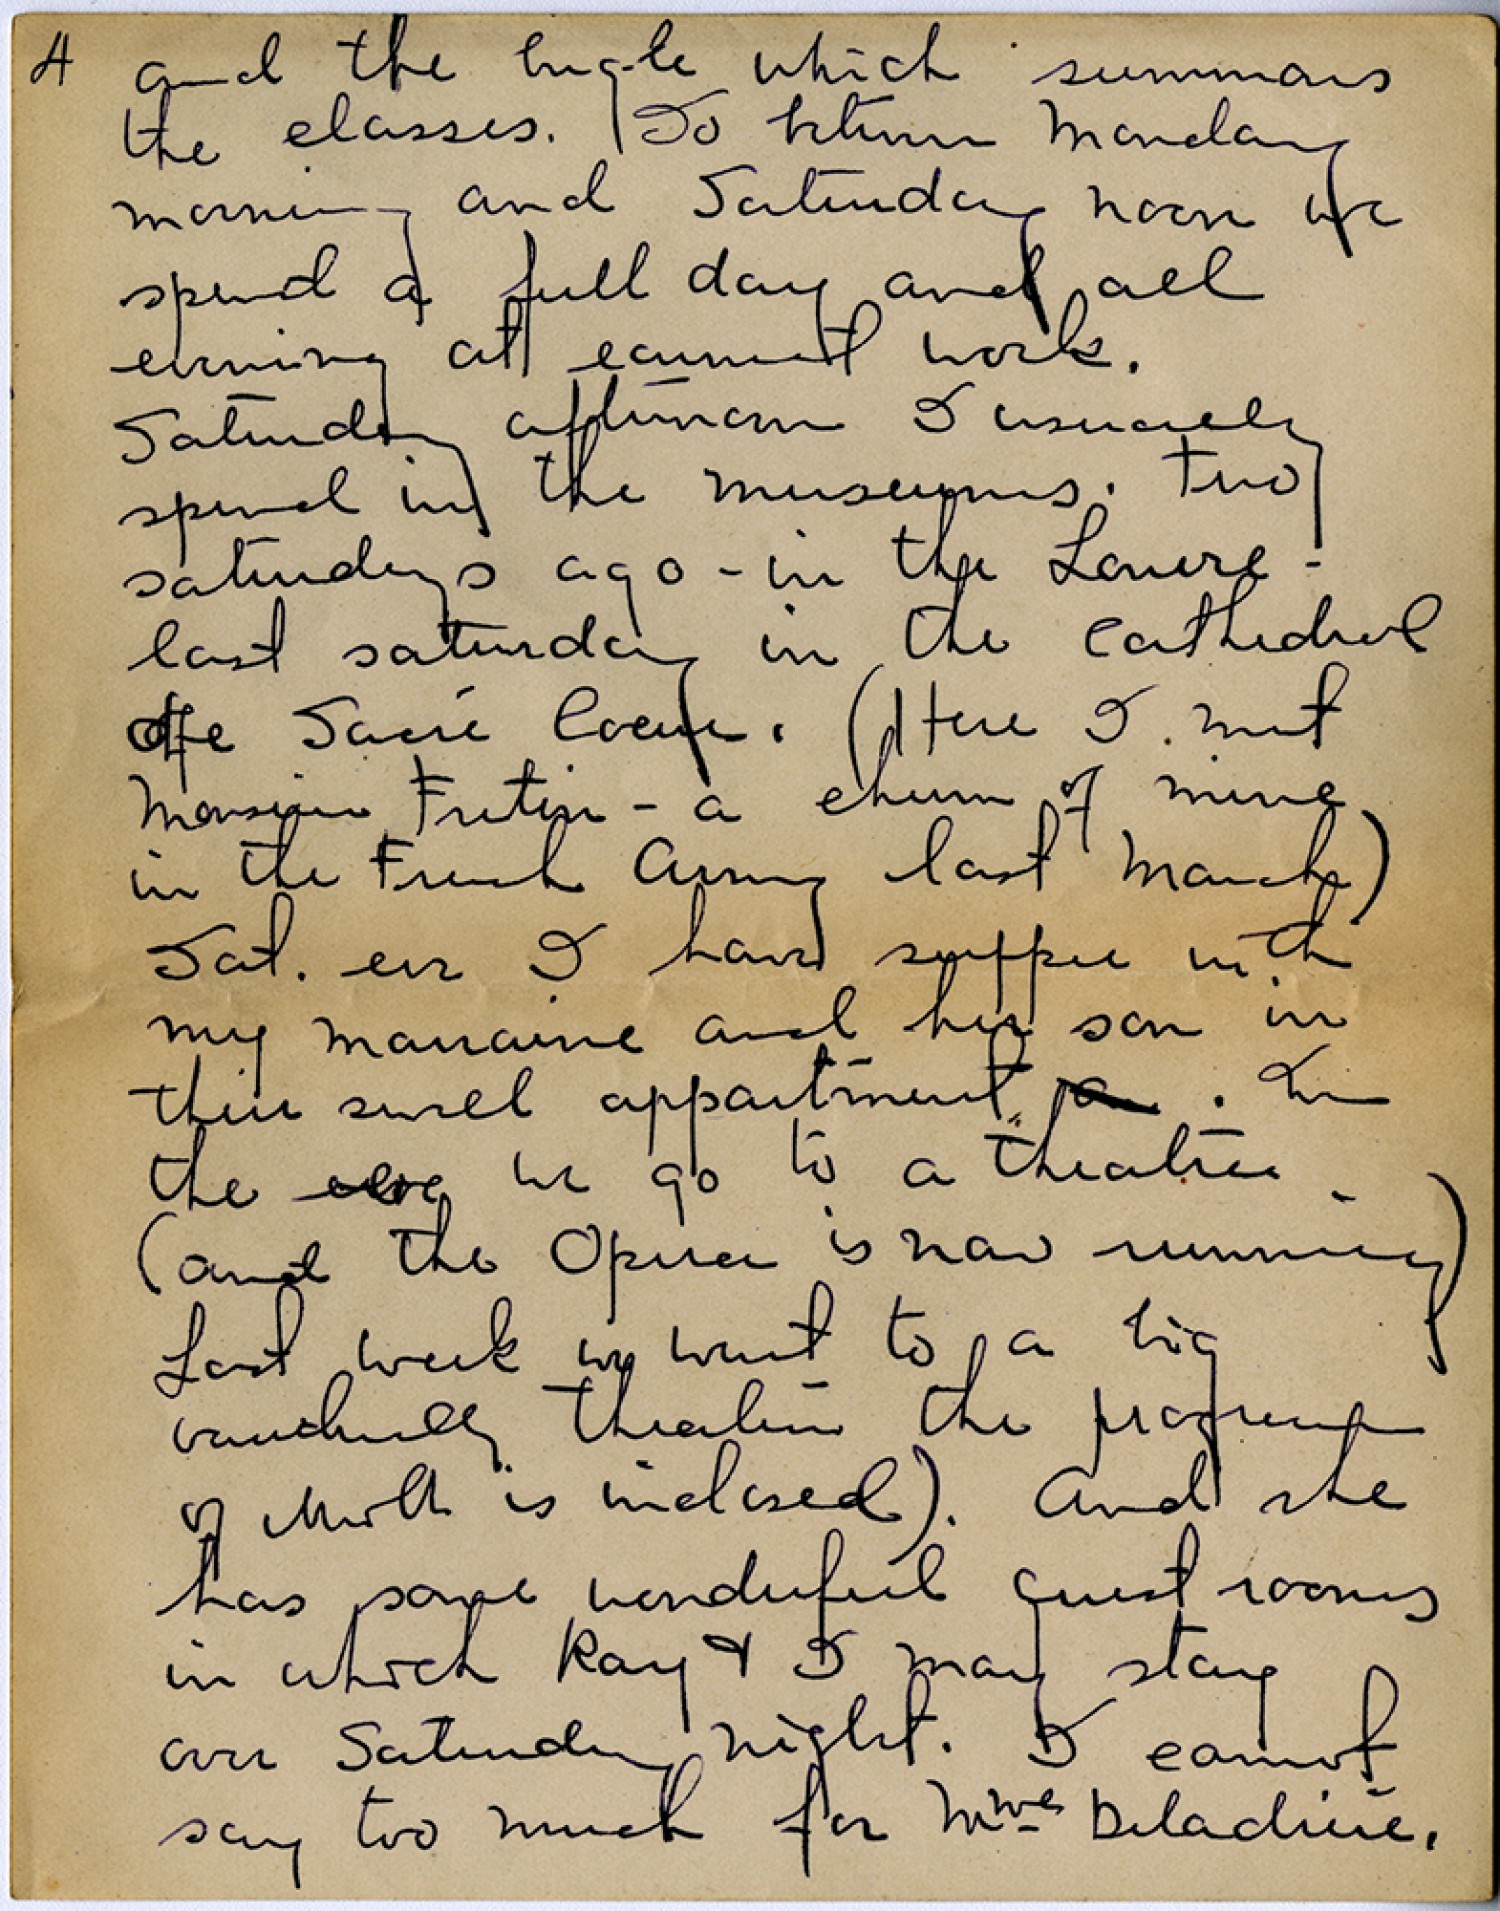 4 and the bugle which summons
the classes. So between Monday
morning and Saturday noon we
spend a full day and all
evening at earnest work.
Saturday afternoon I usually
spend in the museums. Two
saturdays ago - in the Louvre -
last saturday in the Cathedral
of Sacré Coeur. (Here I met
Monsieur Frutin - a chum of mine
in the French Army last March)
Sat. eve I have supper with
my marraine and her son in
their swell appartment. In
the eve we go to a theatre.
(and the Opera is now running)
Last week we went to a big
vaudevilly theatre the program
of which is inclosed). And she
has some wonderful guest rooms
in which Ray & I may stay
over Saturday night. I cannot
say too much for Mme Deladrière.